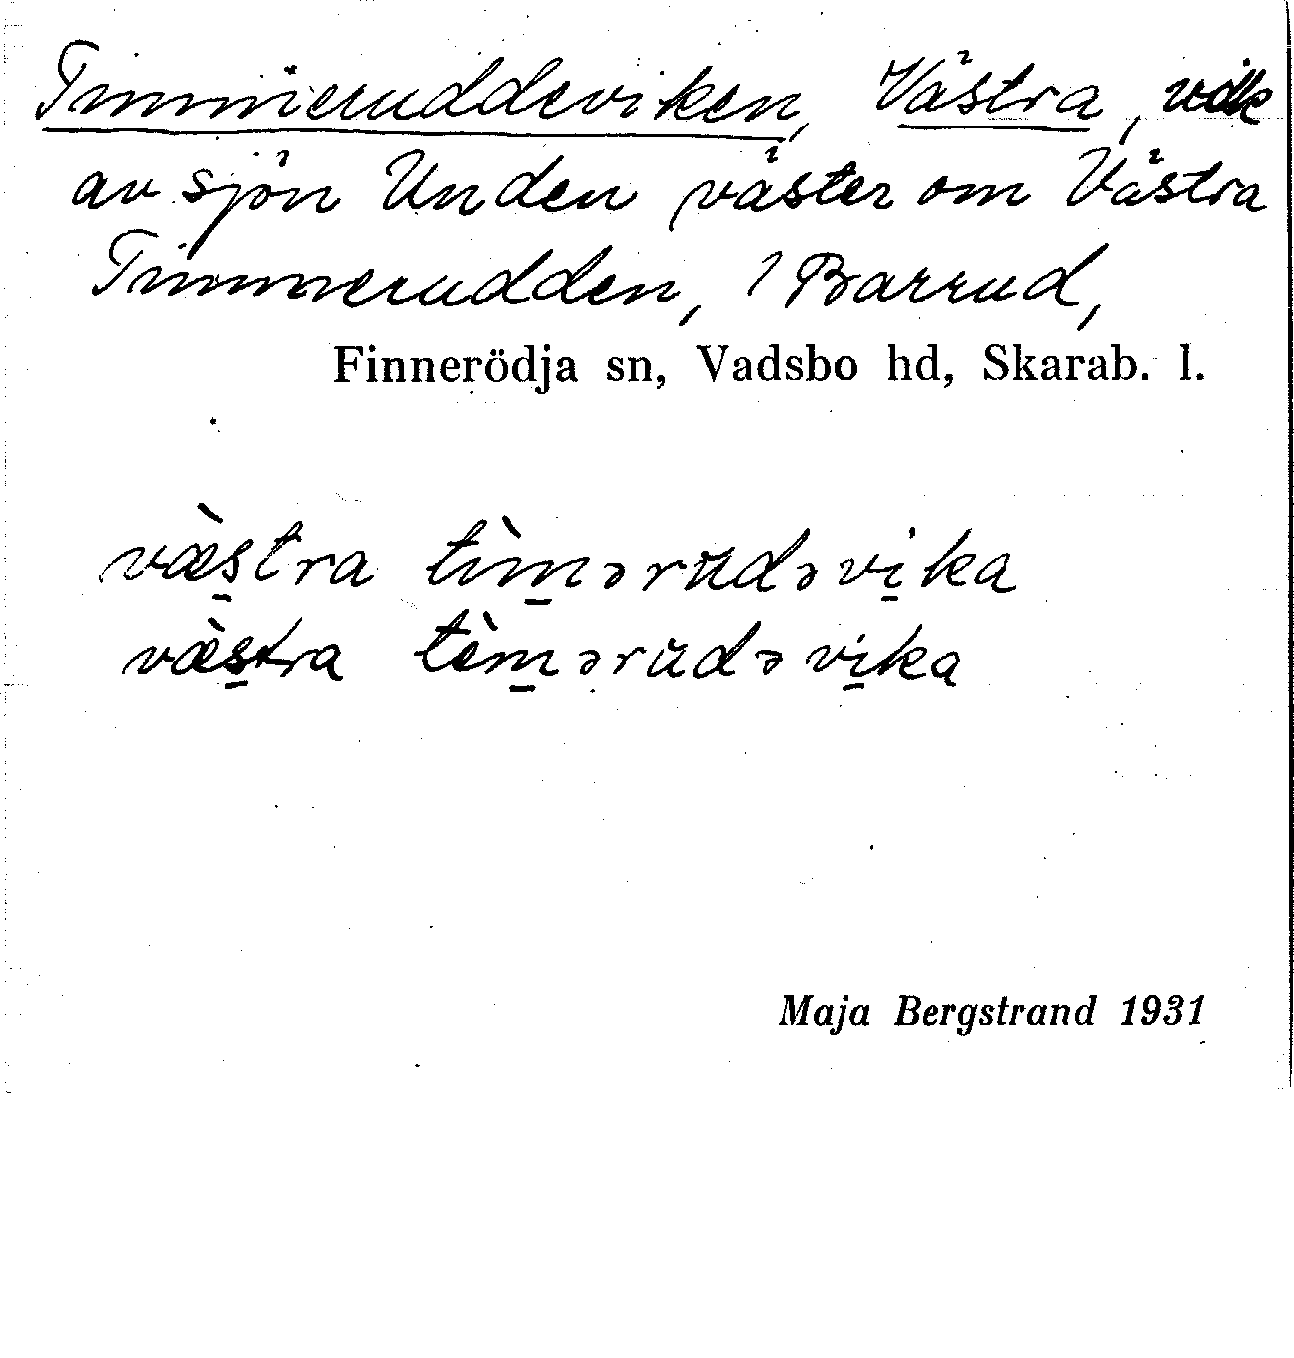 Timmeruddeviken, Västra, vik
av sjön Unden väster om Västra
Timmerudden, i Barrud,
Finnerödja sn, Vadsbo hd, Skarab. l.
væ̀s̠tra tìm̠ərudəvi̠ka
væ̀s̠tra tèm̠ərudəvi̠ka
Maja Bergstrand 1931